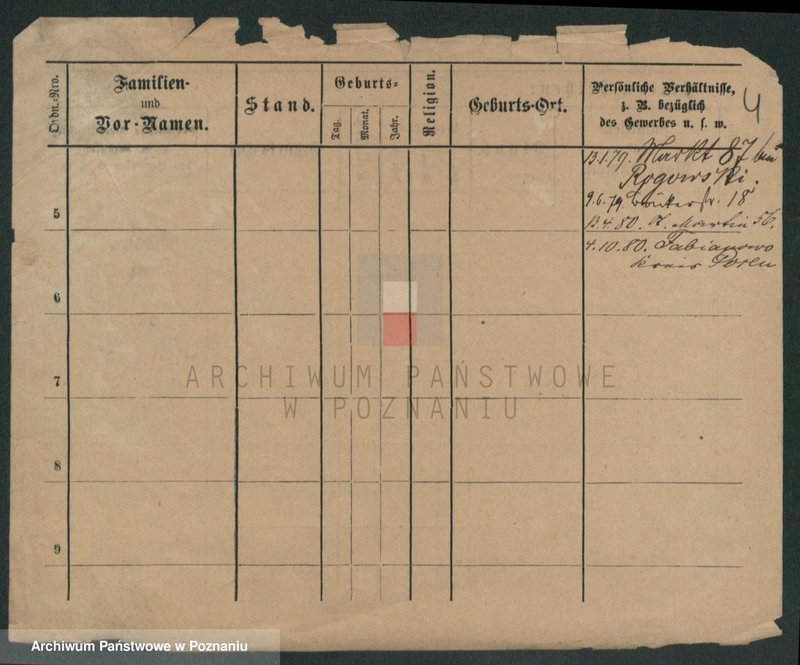 4
Ordn.-Nro.
Familien-
und
Vor-Namen.
Stand.
Geburts-
Tag.
Monat.
Jahr.
Religion.
Geburts-Ort.
Persönliche Verhältnisse,
z. B. bezüglich
des Gewerbes u. s. w.
13.1.79. Markt 87 bei
Rogowski.
9.6.79. 18
5
13.4.80. St. Martin 56.
4.10.80. Fabianowo
Kreis Posen
6
7
8
9
ARCHIWUM PAŃSTWOWE
W POZNANIU
Archiwum Państwowe w Poznaniu